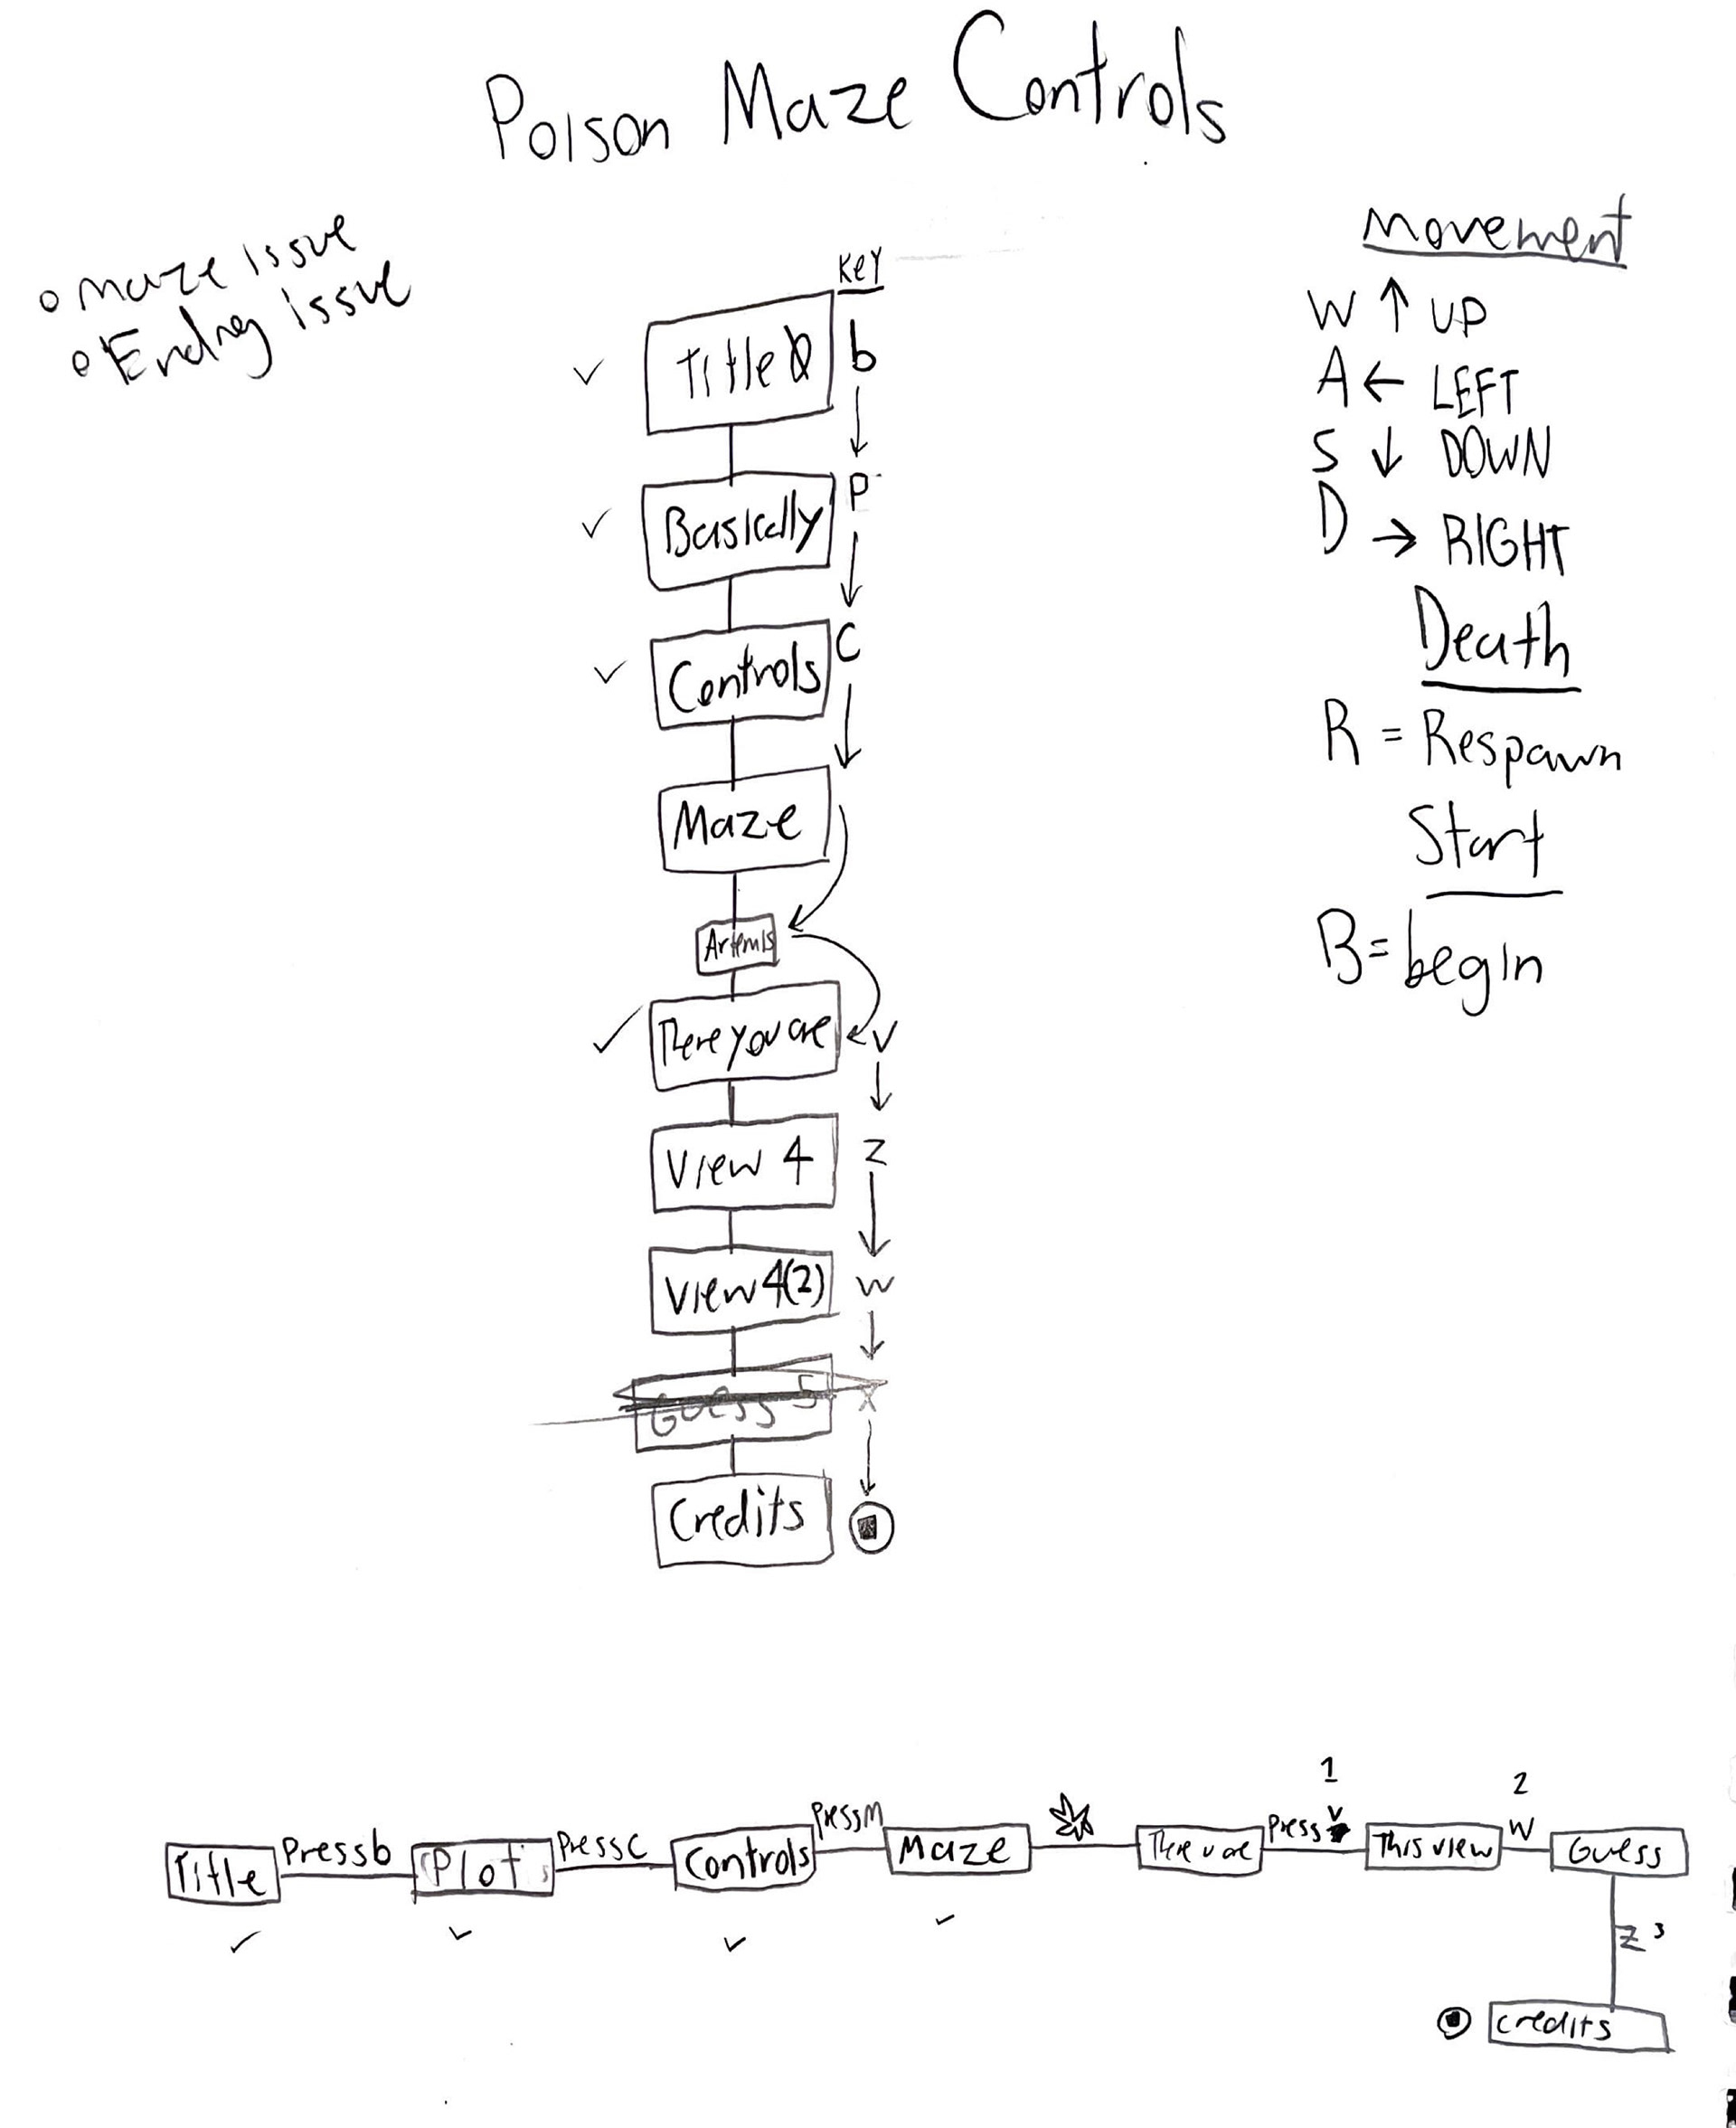 Poison Maze Controls
• Maze issue
• Ending issue
KEY
Title b
Basically P
Controls C
Maze
Artemis
There you are V
View 4 Z
View 4(2) W
Guess 5 X
Credits
Movement
W ↑ UP
A ← LEFT
S ↓ DOWN
D → RIGHT
Death
R = Respawn
Start
B = begin
Title Press b Plot Press C Controls Press M Maze There u are Press V 1 This view W 2 Guess
Z 3
Credits